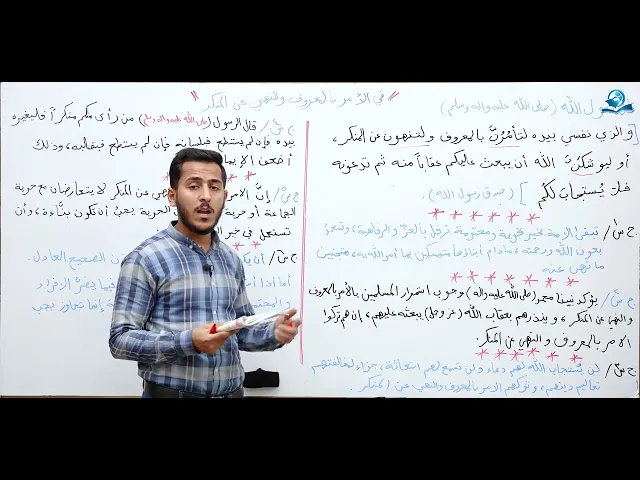 " في الأمر بالمعروف والنهي عن المنكر "
رسول الله (صلى الله عليه واله وسلم)
[والذي نفسي بيده لتأمُرُنَّ بالمعروف ولتنهون عن المنكر،
أو ليوشكنَّ الله أن يبعث عليكم عقاباً منه ثم تدعونه
فلا يُستجاب لكم] (صدق رسول الله).
ج س١/ تبقى الأمة بخير قوية ومحترمة ترفل بالعزّ والرفاهية، وتسعدُ
بعون الله ورحمته، مادام أبناؤها متمسكين بما أمر الله به، مجتنبين
ما نهى عنه
ج س٢/ يؤكد نبينا محمد (صلى الله عليه واله) وجوب استمرار المسلمين بالأمر بالمعروف
والنهي عن المنكر، وينذرهم بعقاب الله (عز وجل) يبعثه عليهم، إن هم تركوا
الأمر بالمعروف والنهي عن المنكر.
ج س٣/ لن يُستجاب الله لهم دعاء ولن تسمع لهم استغاثة، جزاء لمخالفتهم
تعاليم دينهم، وتركهم الأمر بالمعروف والنهي عن المنكر.
ج س٤/ قال الرسول (صلى الله عليه واله وسلم) من رأى منكم منكراً فليغيره
بيده فإن لم يستطع فبلسانه فإن لم يستطع فبقلبه، وذلك
أضعف الإيمان
ج س٥/ إنَّ الأمر عن المنكر لا يتعارضان مع حرية
الجماعة أو حرية الحرية يجبُ أن تكون بنّاءة، وأن
تستعمل في خير
ج س٦/ أن الصحيح العادل.
أما إذا الأفراد
والمجتمع تجاوز يجب